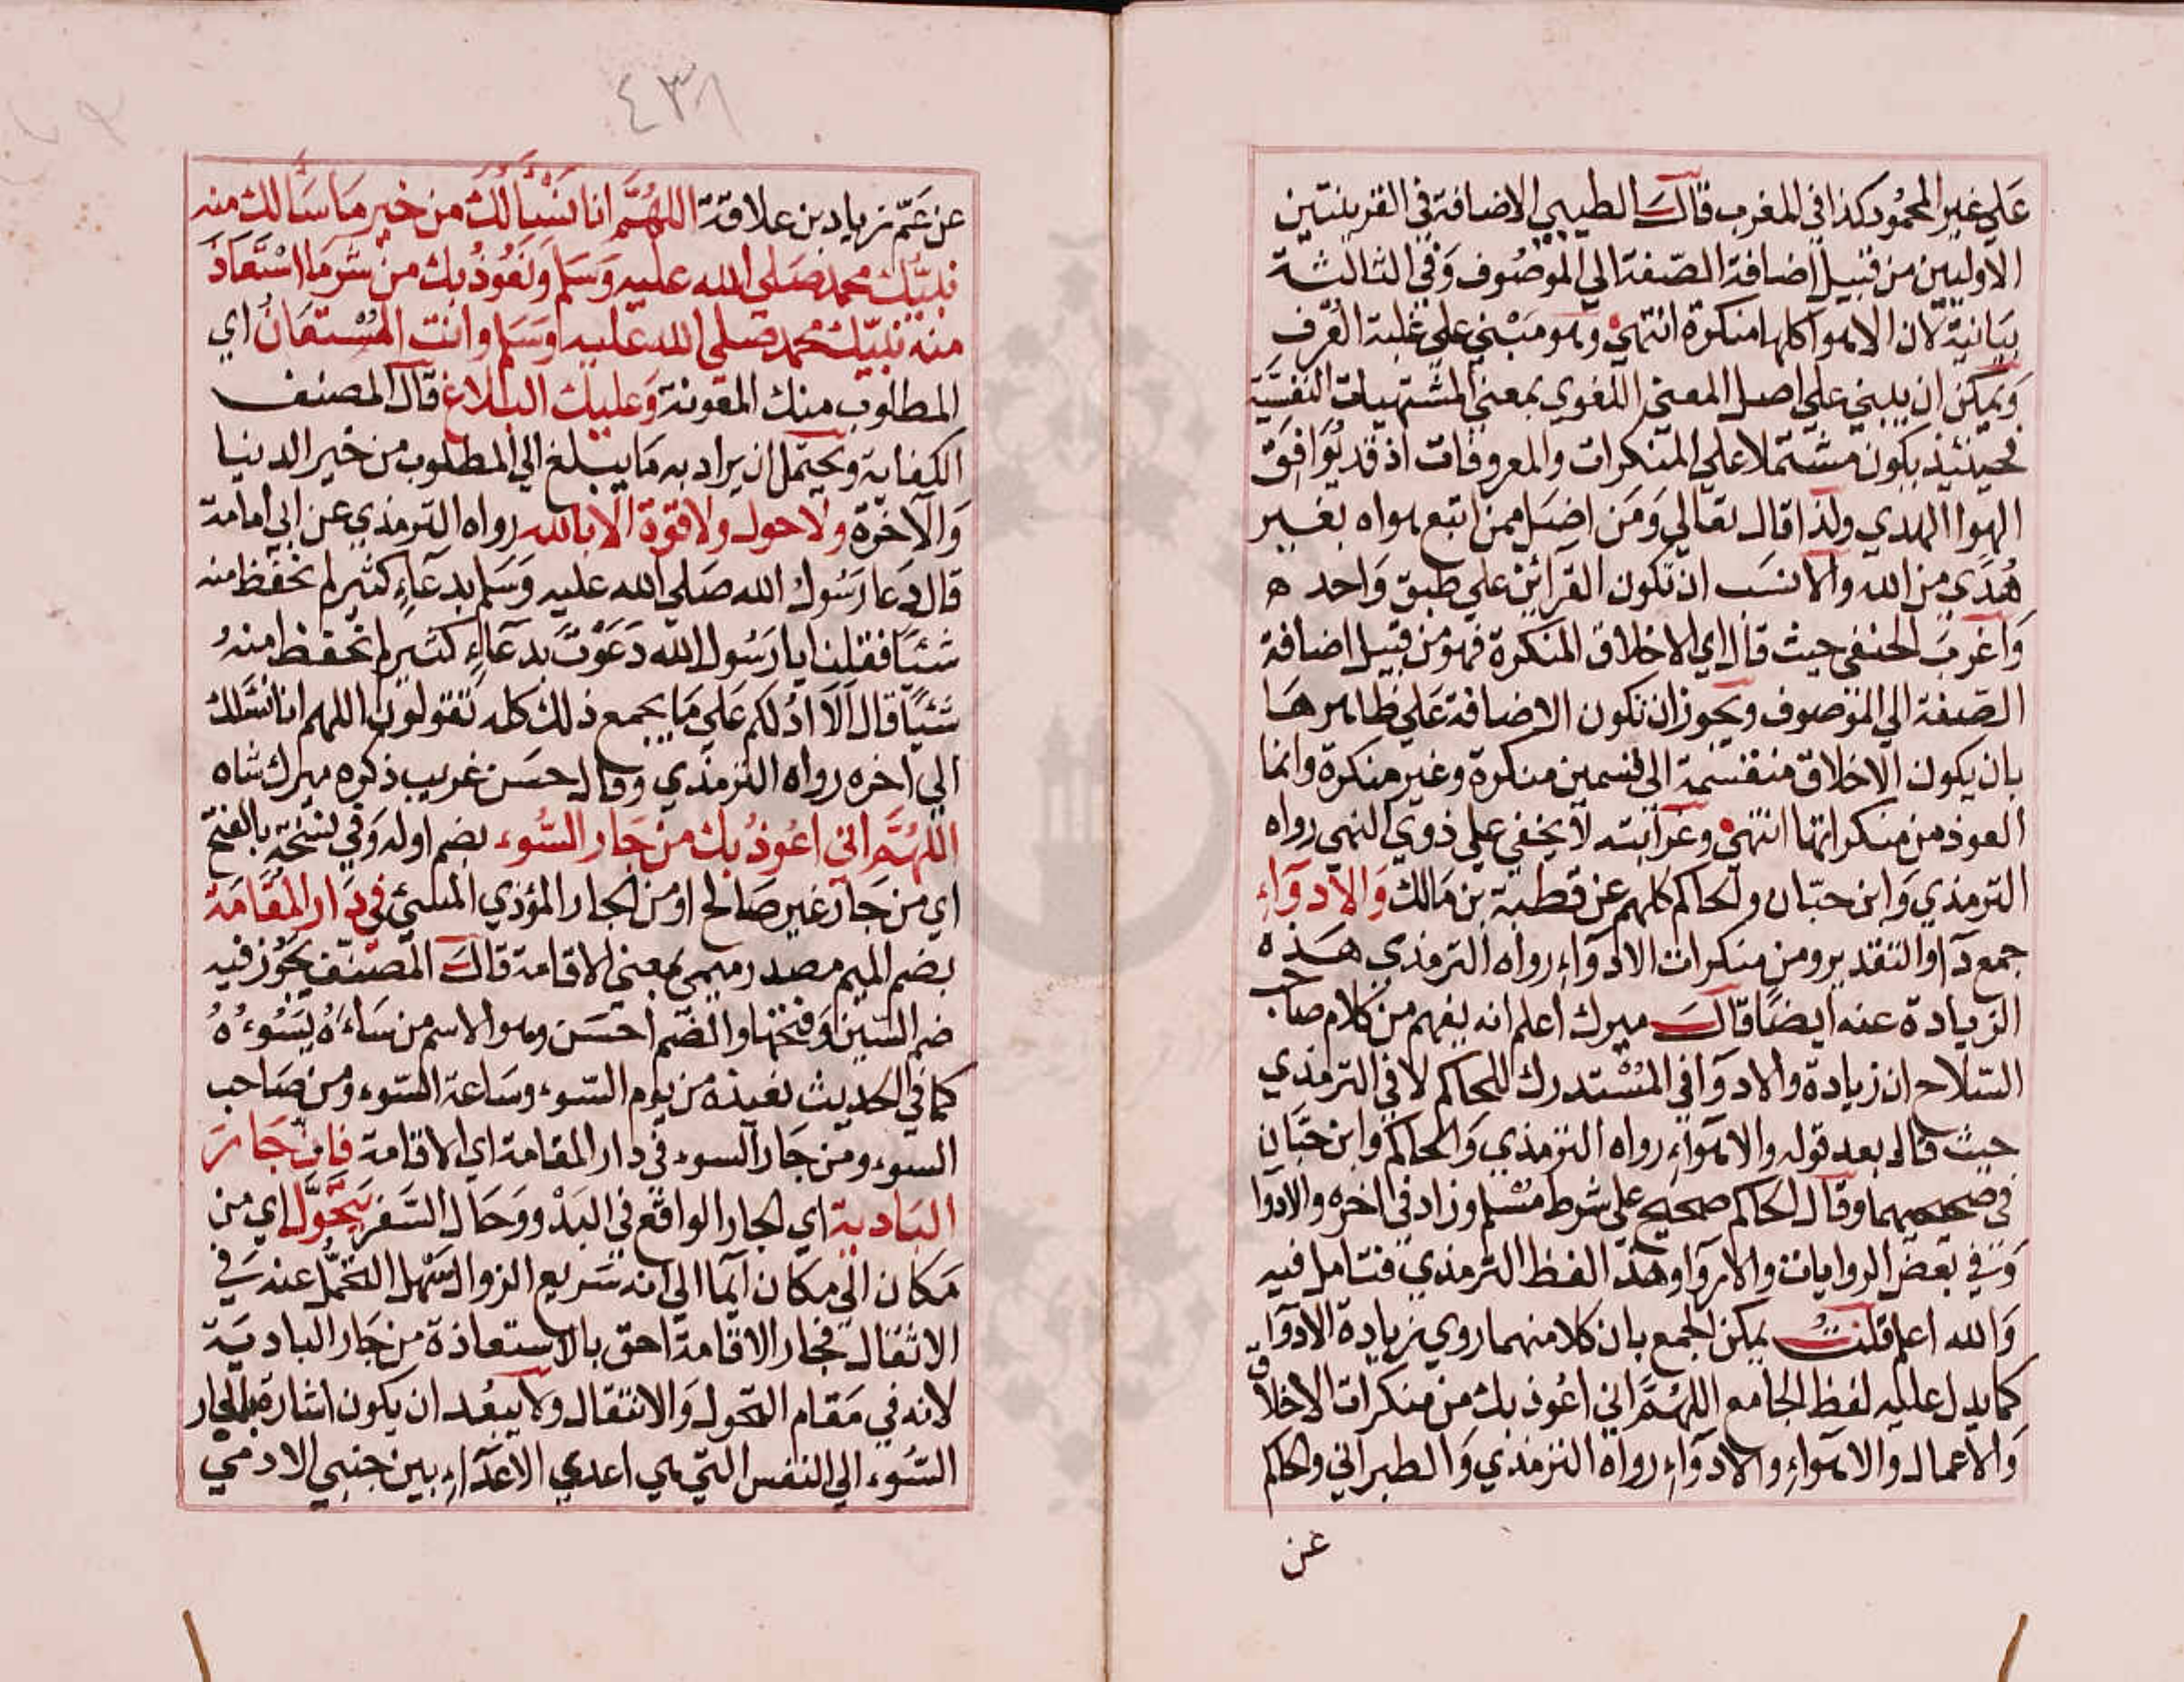 علي غير المحمود كذا في المغرب قال الطيبي الاضافة في القرينتين
الاوليين من قبيل اضافة الصفة الي الموصوف وفي الثالثة
بيانية لان الاهوا كلها منكرة انتهي وهو مبني علي غلبة العرف
ويمكن ان يبني علي اصل المعني اللغوي بمعني المشتهيات النفسية
فحينئذ يكون مشتملا علي المنكرات والمعروفات اذ قد يوافق
الهوا الهدي ولذا قال تعالي ومن اضل ممن اتبع هواه بغير
هدي من الله والانسب ان تكون القرائن علي طبق واحد ه
واغرب الحنفي حيث قال اي الاخلاق المنكرة فهو من قبيل اضافة
الصفة الي الموصوف ويجوز ان تكون الاضافة علي ظاهرها
بان يكون الاخلاق منقسمة الي قسمين منكرة وغير منكرة وانما
العوذ من منكراتها انتهي وغرابته لا يخفي علي ذوي النهي رواه
الترمذي وابن حبان والحاكم كلهم عن قطبة بن مالك والادوآء
جمع دآء والتقدير ومن منكرات الادوآء رواه الترمذي هذه
الزيادة عنه ايضا قال ميرك اعلم انه يفهم من كلام صاحب
السلاح ان زيادة والادوا في المستدرك للحاكم لا في الترمذي
حيث قال بعد قوله والاهوآء رواه الترمذي والحاكم وابن حبان
في صحيحيهما وقال الحاكم صحيح علي شرط مسلم وزاد في اخره والادوا
وفي بعض الروايات والاروا وهذا لفظ الترمذي فتامل فيه
والله اعلم قلت يمكن الجمع بان كلا منهما روي بزيادة الادوا
كما يدل عليه لفظ الجامع اللهم اني اعوذ بك من منكرات الاخلاق
والاعمال والاهوآء والادوآء رواه الترمذي والطبراني والحاكم
عن
٤٣٨
عن عم زياد بن علاقة اللهم انا نسألك من خير ما سألك منه
نبيك محمد صلي الله عليه وسلم ونعوذ بك من شر ما استعاذ
منه نبيك محمد صلي الله عليه وسلم وانت المستعان اي
المطلوب منك المعونة وعليك البلاغ قال المصنف
الكفاية ويحتمل ان يراد به ما يبلغ الي المطلوب من خير الدنيا
والآخرة ولا حول ولا قوة الا بالله رواه الترمذي عن ابي امامة
قال دعا رسول الله صلي الله عليه وسلم بدعآء كثير لم نحفظ منه
شئا فقلنا يا رسول الله دعوت بدعآء كثير لم نحفظ منه
شئيا قال الا ادلكم علي ما يجمع ذلك كله تقولون اللهم انا نسئلك
الي اخره رواه الترمذي وقال حسن غريب ذكره ميرك شاه
اللهم اني اعوذ بك من جار السوء بضم اوله وفي نسخة بالفتح
اي من جار غير صالح او من الجار المؤذي المسئ في دار المقامة
بضم الميم مصدر ميمي بمعني الاقامة قال المصنف يجوز فيه
ضم السين وفتحها والضم احسن وهو الاسم من ساءه يسوءه
كما في الحديث نعيذه من يوم السوء وساعة السوء ومن صاحب
السوء ومن جار السوء في دار المقامة اي الاقامة فان جار
البادية اي الجار الواقع في البدو وحال السفر يتحول اي من
مكان الي مكان ايما الي انه سريع الزوال سهل التحمل عنه في
الاثقال فجار الاقامة احق بالاستعاذة من جار البادية
لانه في مقام التحول والانتقال ولا يبعد ان يكون اشارة بالجار
السوء الي النفس التي هي اعدي الاعدآء بين جنبي الادمي